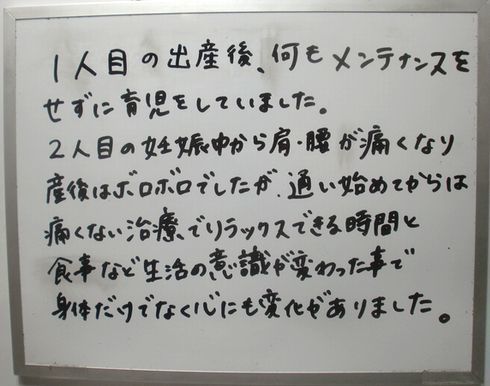 1人目の出産後、何もメンテナンスを
せずに育児をしていました。
2人目の妊娠中から肩・腰が痛くなり
産後はボロボロでしたが、通い始めてからは
痛くない治療、でリラックスできる時間と
食事など生活の意識が変わった事で
身体だけでなく心にも変化がありました。